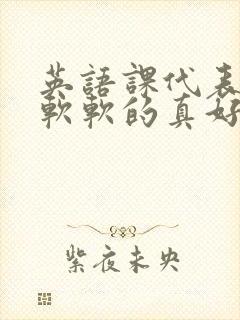 英語課代表
軟軟的真好
紫夜未央